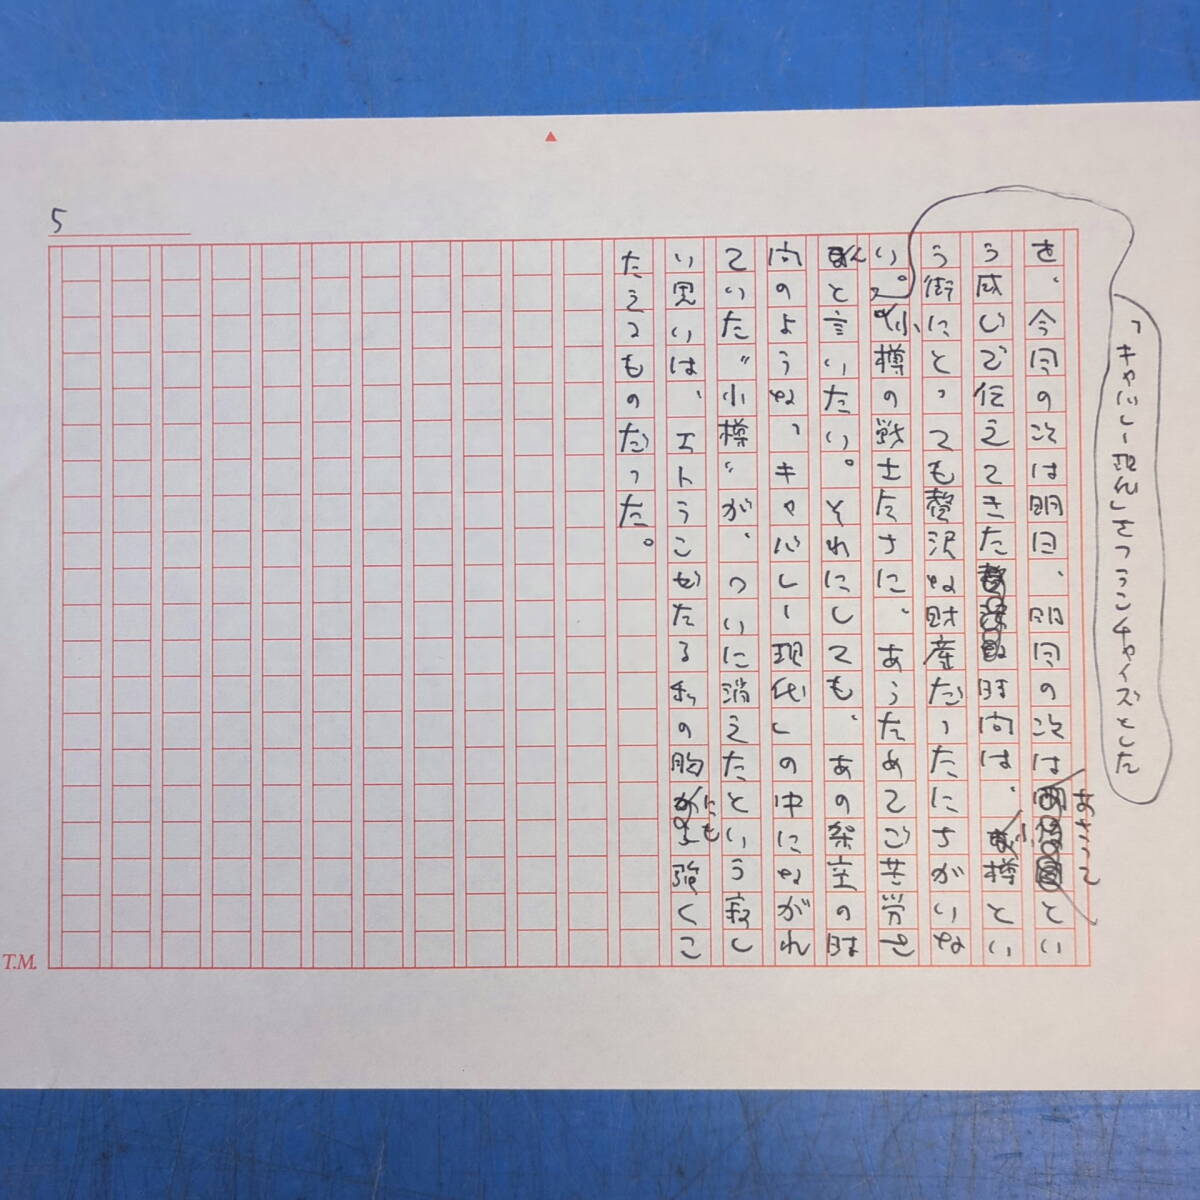 5
「キャバレー現代」をフランチャイズとした
を、今回の次は明日、明日の次はあさってとい
う感じで伝えてきた時間は、小樽とい
う街にとっても贅沢な財産だったにちがいな
い。小樽の戦士たちに、あらためてご苦労さ
んと言いたい。それにしても、あの架空の時
間のような「キャバレー現代」の中にながれ
ていた〝小樽〟が、ついに消えたという寂し
い思いは、エトランゼたる私の胸にも強くこ
たえるものだった。
T.M.